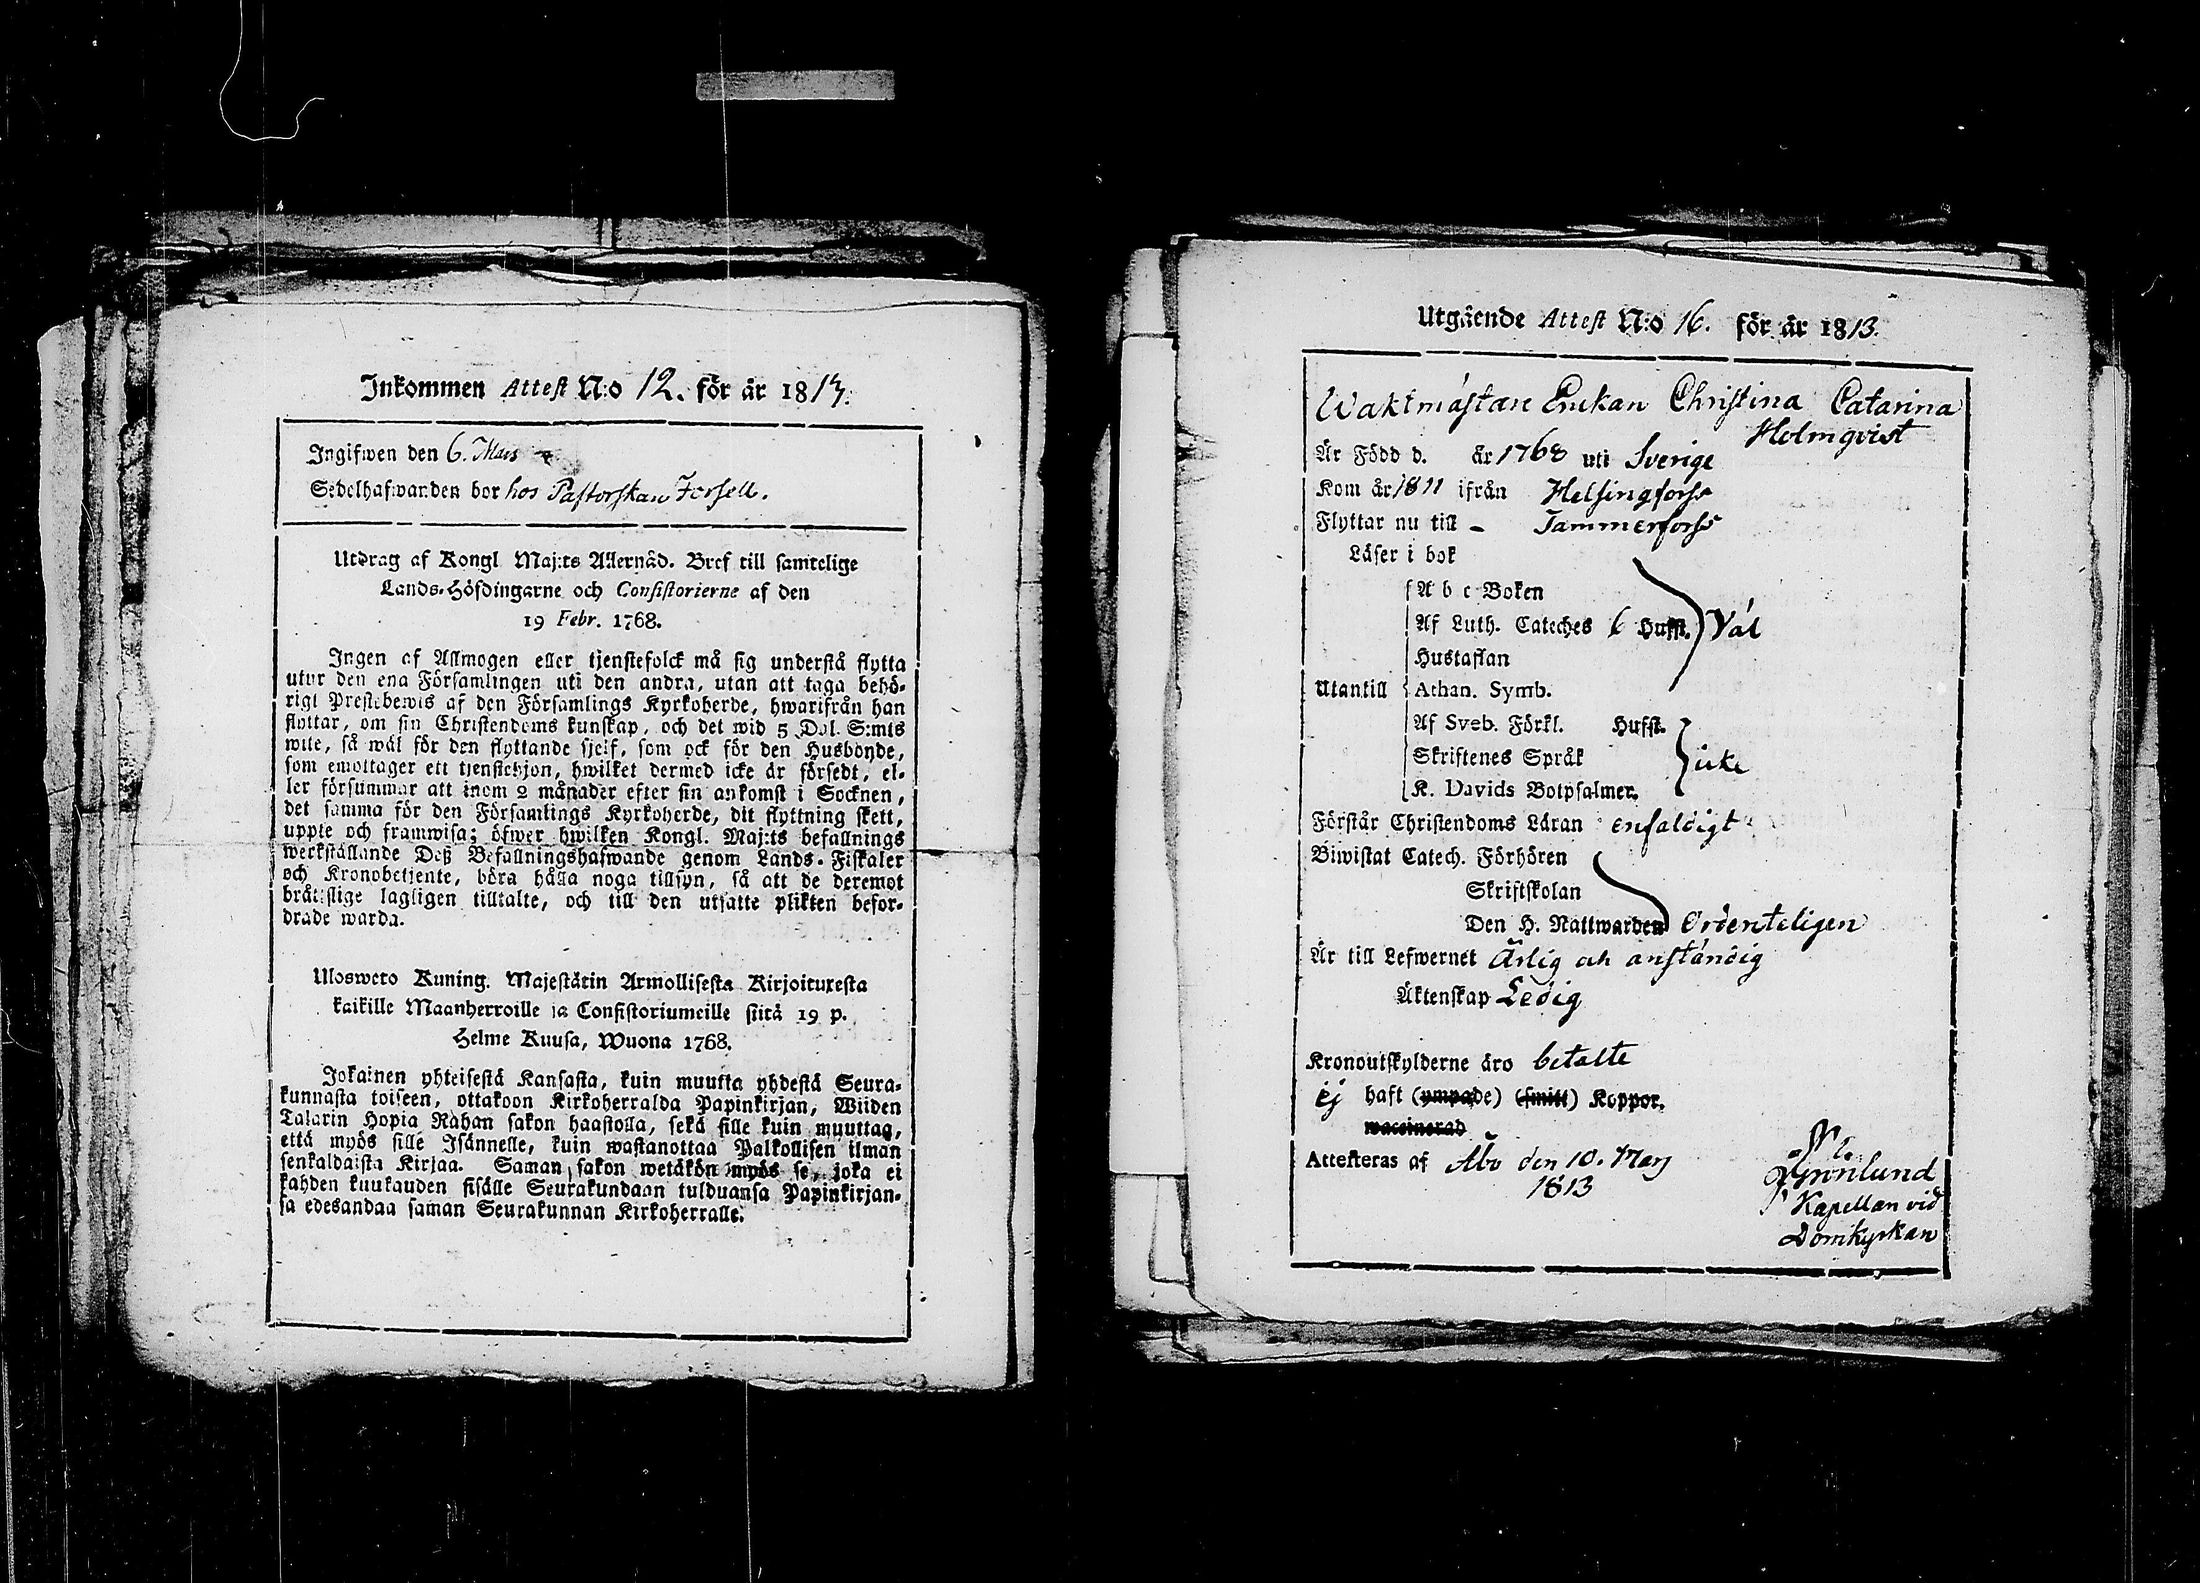 Inkommen Attest N:o 12. för år 1813.
Ingifwen den 6. Mars
Sedelhafwanden bor hos Pastorskan Forsell.
Utdrag af Kongl. Maj:ts Allernåd. Bref till samtelige
Lands-Höfdingarne och Consistorierne af den
19 Febr. 1768.
Ingen af Allmogen eller tjenstefolck må sig understå flytta
utur den ena Församlingen uti den andra, utan att taga behö-
rigt Prestebewis af den Församlings Kyrkoherde, hwarifrån han
flyttar, om sin Christendoms kunskap, och det wid 5 Dal. S:mts
wite, så wäl för den flyttande sjelf, som ock för den Husbonde,
som emottager ett tjenstehjon, hwilket dermed icke är försedt, el-
ler försummar att inom 2 månader efter sin ankomst i Socknen,
det samma för den Församlings Kyrkoherde, dit flyttning skett,
uppte och framwisa; öfwer hwilken Kongl. Maj:ts befallnings
werkställande Deß Befallningshafwande genom Lands-Fiskaler
och Kronobetjente, böra hålla noga tillsyn, så att de deremot
brättslige lagligen tilltalte, och till den utsatte plikten befor-
drade warda.
Ulosweto Kuning. Majestätin Armollisesta Kirjoituxesta
kaikille Maanherroille ja Consistoriumeille siitä 19 p.
Helme Kuusa, Wuona 1768.
Jokainen yhteisestä Kansasta, kuin muutta yhdestä Seura-
kunnasta toiseen, ottakoon Kirkoherralda Papinkirjan, Wiiden
Talarin Hopia Rahan sakon haastolla, sekä sille kuin muuttaa,
että myös sille Isännelle, kuin wastanottaa Palkollisen ilman
senkaldaista Kirjaa. Saman sakon wetäkön myös se, joka ei
kahden kuukauden sisälle Seurakundaan tulduansa Papinkirjan-
sa edesandaa saman Seurakunnan Kirkoherralle.
Utgående Attest N:o 16. för år 1813.
Waktmästare Enckan Christina Catarina
Holmqvist
Är Född d. år 1768 uti Sverige
Kom år 1811 ifrån Helsingforss
Flyttar nu till - Tammerforss
Läser i bok
A b c Boken
Af Luth. Cateches 6 Hufst. Väl
Hustaflan
Utantill Athan. Symb.
Af Sveb. Förkl. Hufst.
Skriftenes Språk icke
K. Davids Botpsalmer.
Förstår Christendoms Läran enfaldigt
Biwistat Catech. Förhören
Skriftskolan
Den H. Nattwarden Ordenteligen
Är till Lefwernet Ärlig och anständig
Äktenskap Ledig
Kronoutskylderne äro betalte
ej haft (ympade) (smitt) Koppor.
waccinerad
Attesteras af Åbo den 10. Marj
1813
Grönlund
Kapellan vid
Domkyrkan